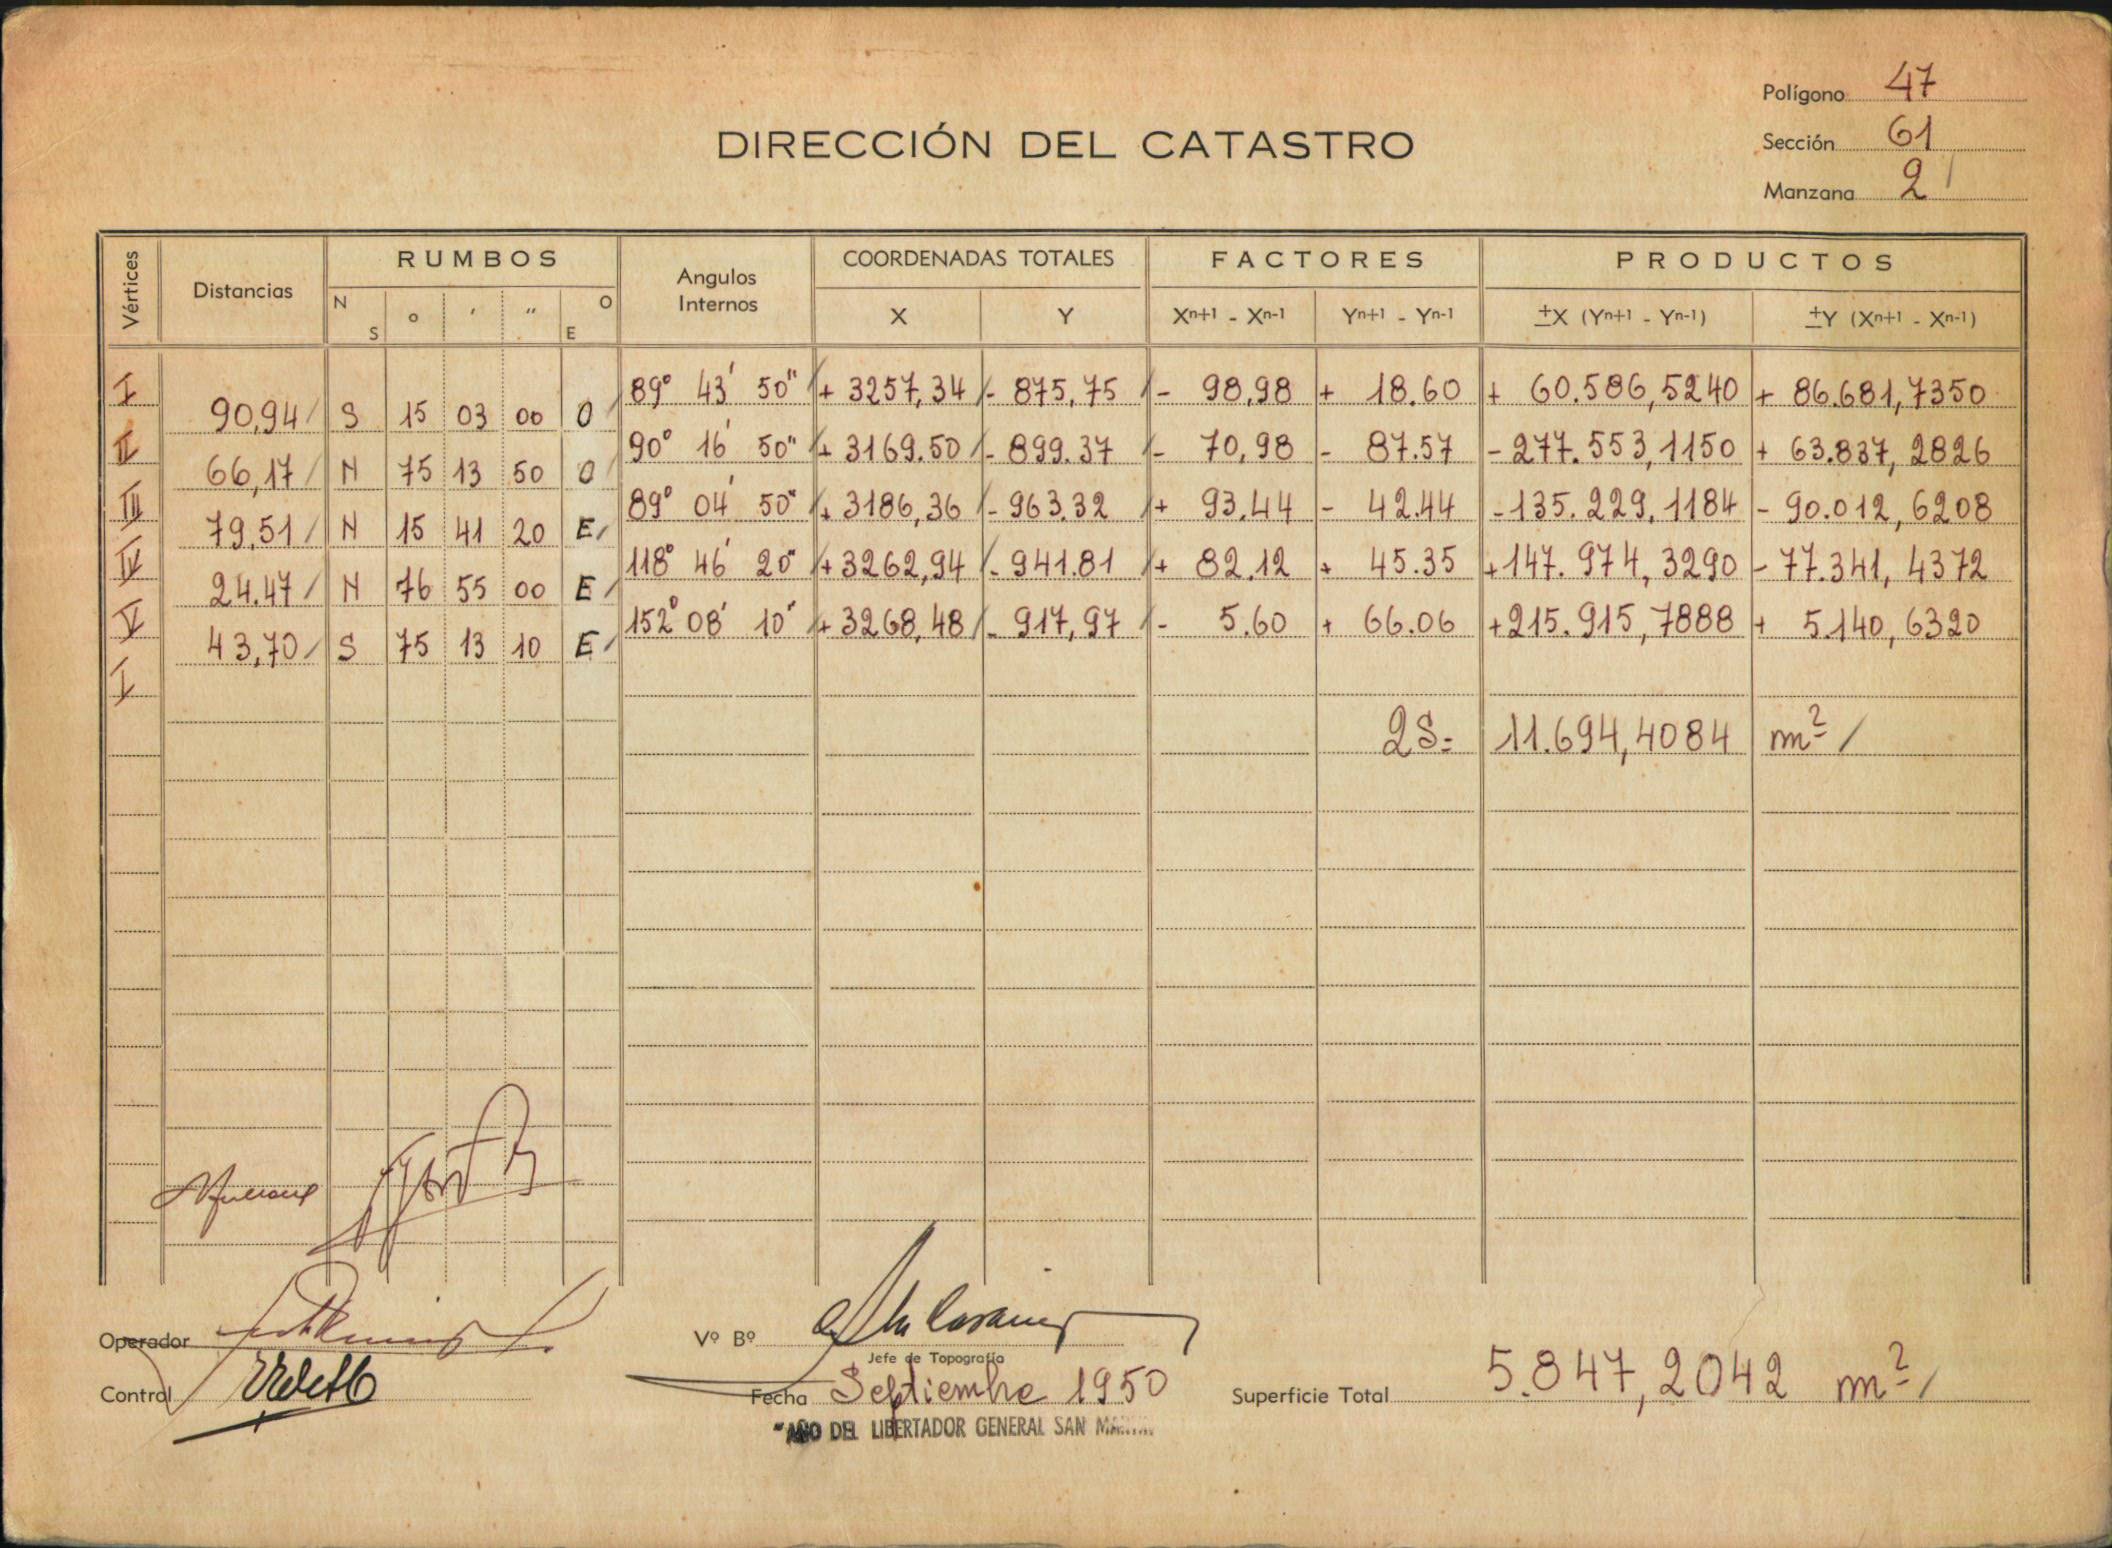 Polígono 47
DIRECCIÓN DEL CATASTRO
Sección 61
Manzana 2
Vértices Distancias RUMBOS Angulos Internos COORDENADAS TOTALES FACTORES PRODUCTOS
N S ° ′ ″ O E X Y Xⁿ⁺¹ - Xⁿ⁻¹ Yⁿ⁺¹ - Yⁿ⁻¹ ±X (Yⁿ⁺¹ - Yⁿ⁻¹) ±Y (Xⁿ⁺¹ - Xⁿ⁻¹)
I 89° 43' 50" + 3257,34 - 875,75 - 98,98 + 18.60 + 60.586,5240 + 86.681,7350
90,94 S 15 03 00 O
II 90° 16' 50" + 3169.50 - 899.37 - 70,98 - 87.57 - 277.553,1150 + 63.837,2826
66,17 N 75 13 50 O
III 89° 04' 50" + 3186,36 - 963.32 + 93.44 - 42.44 - 135.229,1184 - 90.012,6208
79,51 N 15 41 20 E
IV 118° 46' 20" + 3262,94 - 941.81 + 82.12 + 45.35 + 147.974,3290 - 77.341,4372
24.47 N 76 55 00 E
V 152° 08' 10" + 3268,48 - 917,97 - 5.60 + 66.06 + 215.915,7888 + 5.140,6320
43,70 S 75 13 10 E
I
2S= 11.694,4084 m²
Operador
Vº Bº
Jefe de Topografía
Control
Fecha Septiembre 1950
Superficie Total 5.847,2042 m²
"AÑO DEL LIBERTADOR GENERAL SAN